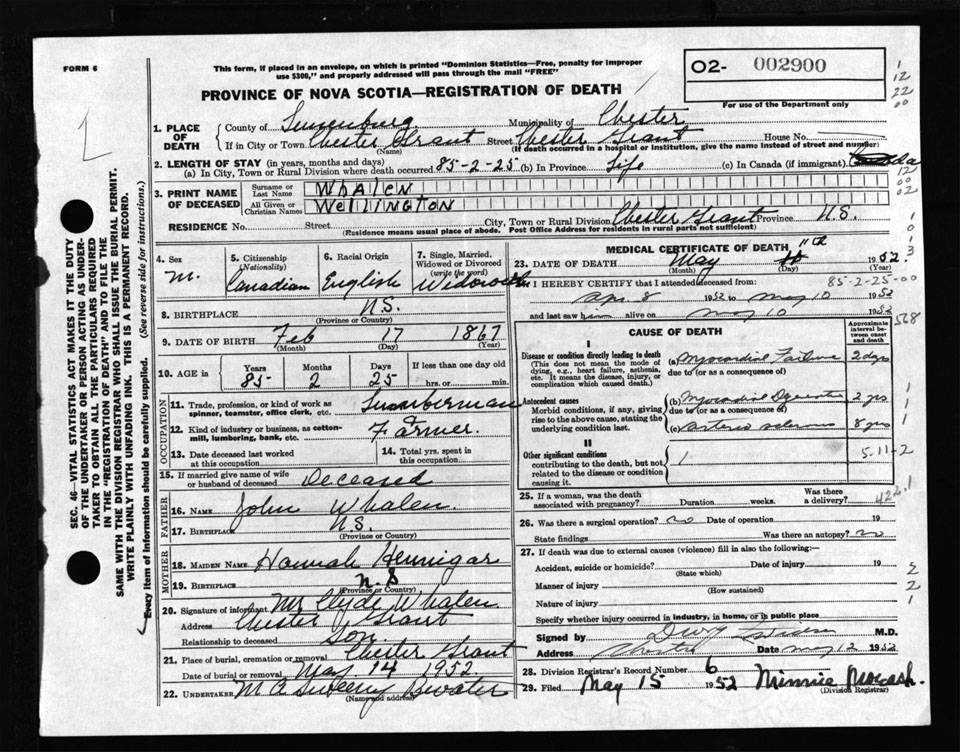 FORM 6
This form, if placed in an envelope, on which is printed "Dominion Statistics—Free, penalty for improper
use $300," and properly addressed will pass through the mail "FREE"
O2- 002900
For use of the Department only
PROVINCE OF NOVA SCOTIA—REGISTRATION OF DEATH
1. PLACE OF DEATH
County of Lunenburg Municipality of Chester
If in City or Town Chester Grant Street Chester Grant House No.
(Name) (If death occurred in a hospital or institution, give the name instead of street and number)
2. LENGTH OF STAY (in years, months and days)
(a) In City, Town or Rural Division where death occurred 85-2-25 (b) In Province Life (c) In Canada (if immigrant)
3. PRINT NAME OF DECEASED
Surname or Last Name WHALEN
All Given or Christian Names WELLINGTON
RESIDENCE No. Street City, Town or Rural Division Chester Grant Province N.S.
(Residence means usual place of abode. Post Office Address for residents in rural parts not sufficient)
4. Sex M.
5. Citizenship (Nationality) Canadian
6. Racial Origin English
7. Single, Married, Widowed or Divorced (write the word) Widowed
8. BIRTHPLACE N.S.
(Province or Country)
9. DATE OF BIRTH Feb 17 1867
(Month) (Day) (Year)
10. AGE in Years 85 Months 2 Days 25 If less than one day old hrs. or min.
OCCUPATION
11. Trade, profession, or kind of work as spinner, teamster, office clerk, etc. Lumberman
12. Kind of industry or business, as cotton-mill, lumbering, bank, etc. Farmer.
13. Date deceased last worked at this occupation
14. Total yrs. spent in this occupation
15. If married give name of wife or husband of deceased Deceased
FATHER
16. NAME John Whalen
17. BIRTHPLACE N.S.
(Province or Country)
MOTHER
18. MAIDEN NAME Hannah Hennigar
19. BIRTHPLACE N.S
(Province or Country)
20. Signature of informant Mr Clyde Whalen
Address Chester Grant
Relationship to deceased Son.
21. Place of burial, cremation or removal Chester Grant
Date of burial or removal May 14 1952.
22. UNDERTAKER M A Sweeny Bwater
(Name and address)
MEDICAL CERTIFICATE OF DEATH
23. DATE OF DEATH May 11th 1952.
(Month) (Day) (Year)
I HEREBY CERTIFY that I attended deceased from: 85-2-25-00
Apr 8 1952 to May 10 1952
and last saw him alive on May 10 1952
568
CAUSE OF DEATH
Approximate interval between cause and death
I
Disease or condition directly leading to death
(This does not mean the mode of dying, e.g., heart failure, asthenia, etc. It means the disease, injury, or complication which caused death.)
(a) Myocardial Failure 2 dys
due to (or as a consequence of)
Antecedent causes
Morbid conditions, if any, giving rise to the above cause, stating the underlying condition last.
(b) Myocardial 2 yrs
due to (or as a consequence of)
(c) Arterio sclerosis 8 yrs
II
Other significant conditions
contributing to the death, but not related to the disease or condition causing it.
5-11-2
422.1
25. If a woman, was the death associated with pregnancy? Duration weeks. Was there a delivery?
26. Was there surgical operation? no Date of operation 19
State findings Was there an autopsy? no
27. If death was due to external causes (violence) fill in also the following:—
Accident, suicide or homicide? Date of injury 19
(State which)
Manner of injury
(How sustained)
Nature of injury
Specify whether injury occurred in industry, in home, or in public place
Signed by M.D.
Address Chester Date May 12 1952
28. Division Registrar's Record Number 6
29. Filed May 15 1952 Minnie
(Division Registrar)
SEC. 46—VITAL STATISTICS ACT MAKES IT THE DUTY
OF THE UNDERTAKER OR PERSON ACTING AS UNDER-
TAKER TO OBTAIN ALL THE PARTICULARS REQUIRED
IN THE "REGISTRATION OF DEATH" AND TO FILE THE
SAME WITH THE DIVISION REGISTRAR WHO SHALL ISSUE THE BURIAL PERMIT.
WRITE PLAINLY WITH UNFADING INK. THIS IS A PERMANENT RECORD.
Every item of information should be carefully supplied. (See reverse side for instructions.)